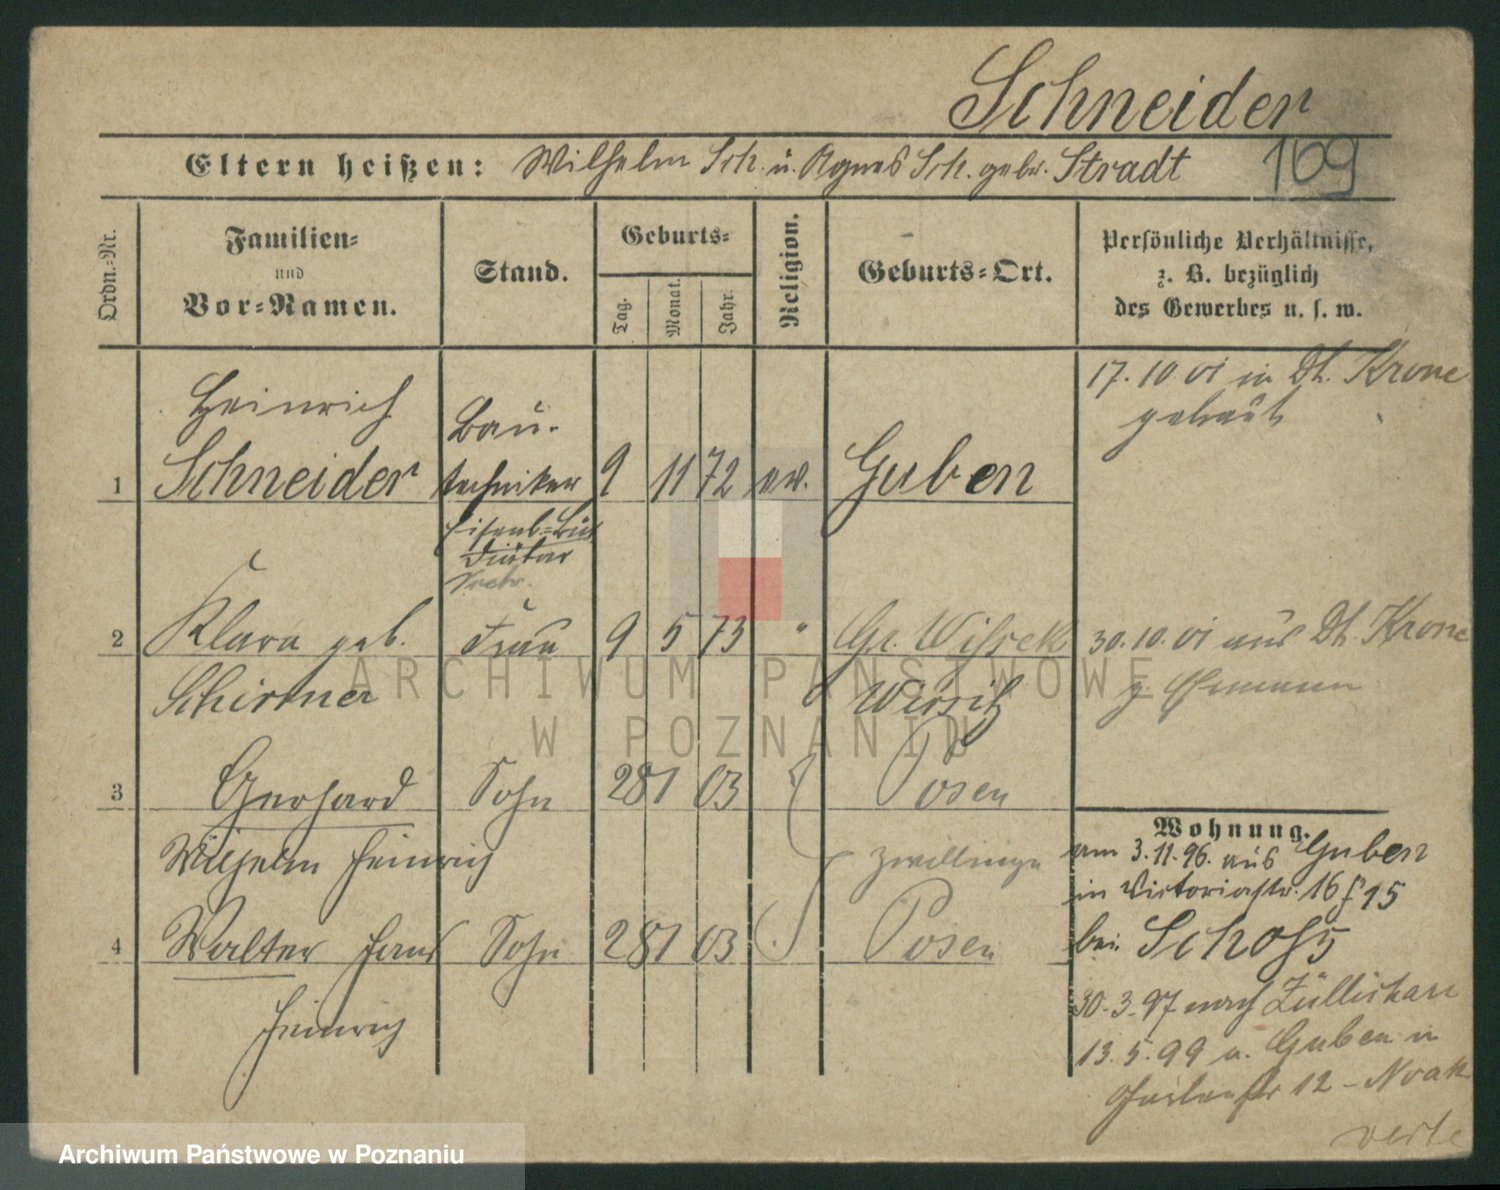 Schneider
Eltern heißen: Wilhelm Sch. u. Agnes Sch. gebr. Stradt
169
Ordn.-Nr.
Familien-
und
Vor-Namen.
Stand.
Geburts-
Tag.
Monat.
Jahr.
Religion.
Geburts-Ort.
Persönliche Verhältnisse,
z. B. bezüglich
des Gewerbes u. s. w.
Heinrich
1 Schneider
Bau-
techniker 9 11 72 ev. Guben
Eisenb.=
Diätar
17.10.01 in Dt. Krone
getraut
2 Klara geb. Frau 9 5 73 " Gr. Wissek
Schirmer
Wirsitz
30.10.01 aus Dt. Krone
z. Ehemann
3 Gerhard Sohn 28 1 03 Posen
Wilhelm Heinrich
Zwillinge
4 Walter Hans Sohn 28 1 03 Posen
Heinrich
Wohnung.
am 3.11.96. aus Guben
in Victoriastr. 16 15
bei
30.3.97 nach Züllichau
13.5.99 v. Guben in
12 - Noak
verte
ARCHIWUM PAŃSTWOWE
W POZNANIU
Archiwum Państwowe w Poznaniu